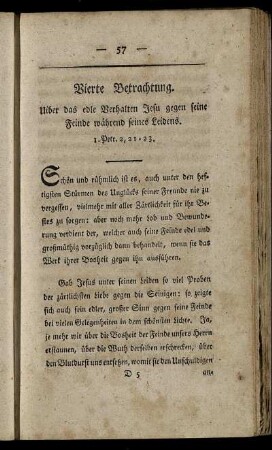 — 57 —
Vierte Betrachtung.
Uiber das edle Verhalten Jesu gegen seine
Feinde während seines Leidens.
1. Petr. 2, 21-23.
Schön und rühmlich ist es, auch unter den hef-
tigsten Stürmen des Unglücks seiner Freunde nie zu
vergessen, vielmehr mit aller Zärtlichkeit für ihr Be-
stes zu sorgen: aber noch mehr Lob und Bewunde-
rung verdient der, welcher auch seine Feinde edel und
großmüthig vorzüglich dann behandelt, wenn sie das
Werk ihrer Bosheit gegen ihn ausführen.
Gab Jesus unter seinen Leiden so viel Proben
der zärtlichsten Liebe gegen die Seinigen: so zeigte
sich auch sein edler, großer Sinn gegen seine Feinde
bei vielen Gelegenheiten in dem schönsten Lichte. Ja,
je mehr wir über die Bosheit der Feinde unsers Herrn
erstaunen, über die Wuth derselben erschrecken, über
den Blutdurst uns entsetzen, womit sie den Unschuldigen
D 5
an-